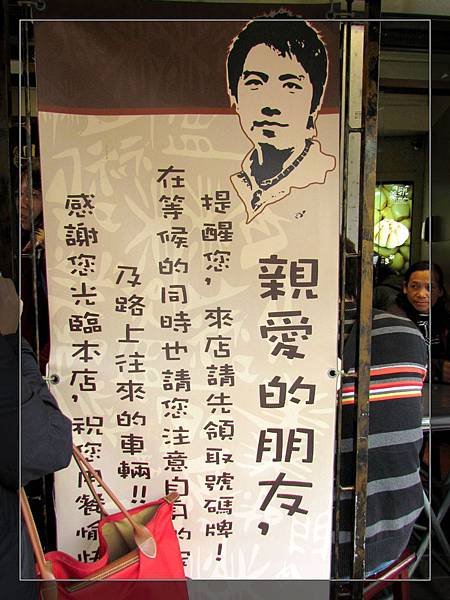 親愛的朋友，
提醒您，來店請先領取號碼牌！
在等候的同時也請您注意自身的
及路上往來的車輛！！
感謝您光臨本店，祝您用餐愉快